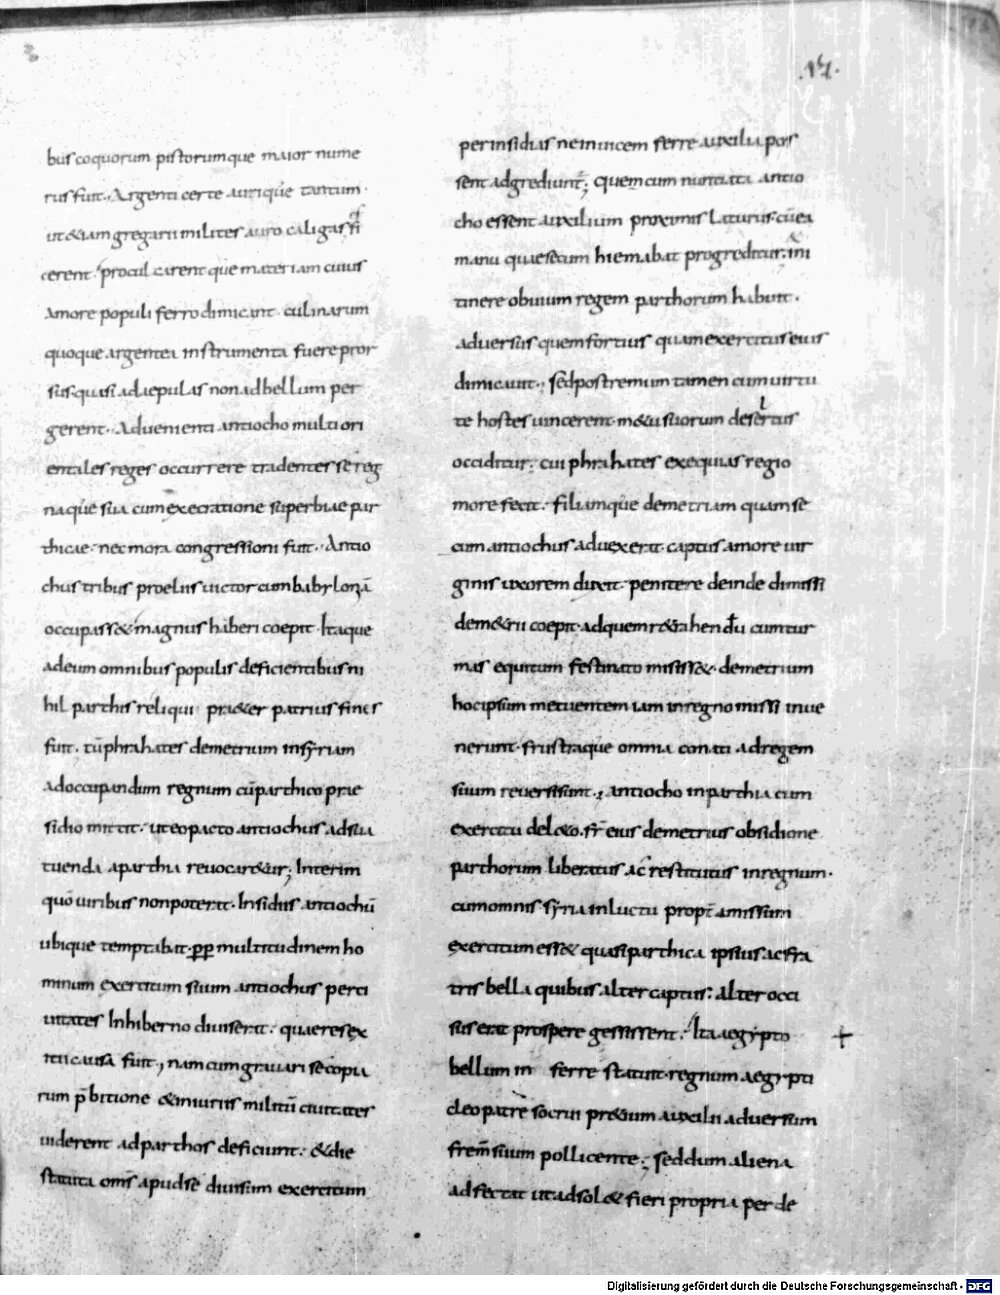 .17.
bus coquorum pistorumque maior nume
rus fuit., Argenti certe aurique tantum.
ut &iam gregarii milites auro caligas fi
cerent. procul carent que materiam cuius
Amore populi ferro dimicant. culinarum
quoque argentea instrumenta fuere pror
sus. quasi ad epulas non ad bellum per
gerent., Aduenienti antiocho multi ori
entales reges occurrere tradentes se reg
naque sua cum execratione superbiae par
thicae. nec mora congressioni fuit., Antio
chus tribus proeliis uictor cum babylonā
occupass& magnus haberi coepit. Itaque
ad eum omnibus populis deficientibus ni
hil parthis reliqui pra&er patrius fines
fuit. tū phrahates demetrium in syriam
ad occupandum regnum cū parthico prae
sidio mittit. ut eo pacto antiochus ad sua
tuenda a parthia reuocar&ur; Interim
quō uiribus non poterat. Insidiis antiochū
ubique temptabat. ꝓꝑ multitudinem ho
minum exercitum suum antiochus per ci
uitates In hiberno diuiserat. quae res ex
itii causa fuit, nam cum grauari se copia
rum p̄bitione & iniuriis militū ciuitates
uiderent ad parthos deficiunt. & die
statuta om̄s apud se diuisum exercitum
per insidias ne inuicem ferre auxilia pos
sent adgrediunt̄; Quem cum nuntiata antio
cho essent auxilium proximis laturus. cū ea
manu quae secum hiemabat progreditur. in i
tinere obuium regem parthorum habuit.
aduersus quem fortius quam exercitus eius
dimicauit., sed postremum tamen cum uirtu
te hostes uincerent. m&u suorum desertus
occiditur; cui phrahates exequias regio
more fecit. filiamque demetriam quam se
cum antiochus aduexerat. captus amore uir
ginis uxorem duxit. penitere deinde dimissi
dem&rii coepit. ad quem r&rahendū cum tur
mas equitum festinato misiss&. demetrium
hoc ipsum metuentem iam in regno missi inue
nerunt. frustraque omnia conati ad regem
suum reuersi sunt., antiocho in parthia cum
exercitu del&o. fr̄ eius demetrius obsidione
parthorum liberatus ac restitutus in regnum.
cum omnis syria in luctu propt̄ amissum
exercitum ess& quasi parthica ipsius ac fra
tris bella quibus alter captus. alter occi
sus erat prospere gessissent. Ita aegypto
bellum in ferre statuit. regnum aegypti
cleopatre socrui pr&ium auxilii aduersum
frem̄ suum pollicente; sed dum aliena
adfectat ut adsol& fieri propria per de
Digitalisierung gefördert durch die Deutsche Forschungsgemeinschaft - DFG